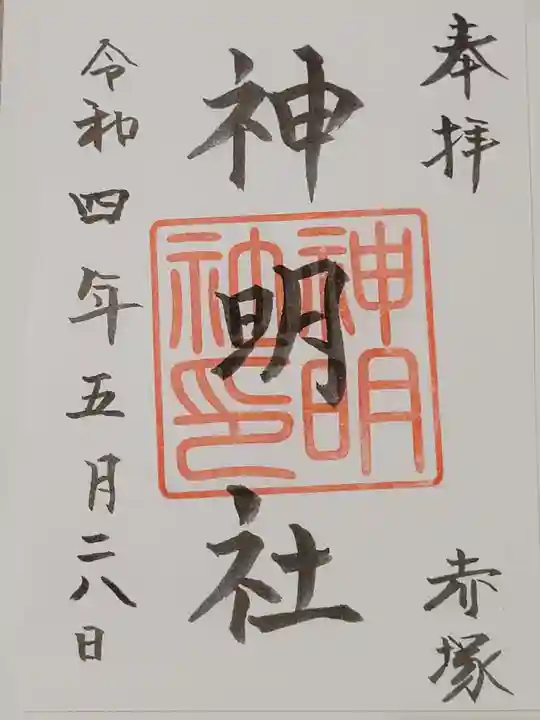 奉拝
赤塚
神明社
神明
社印
令和四年五月二八日